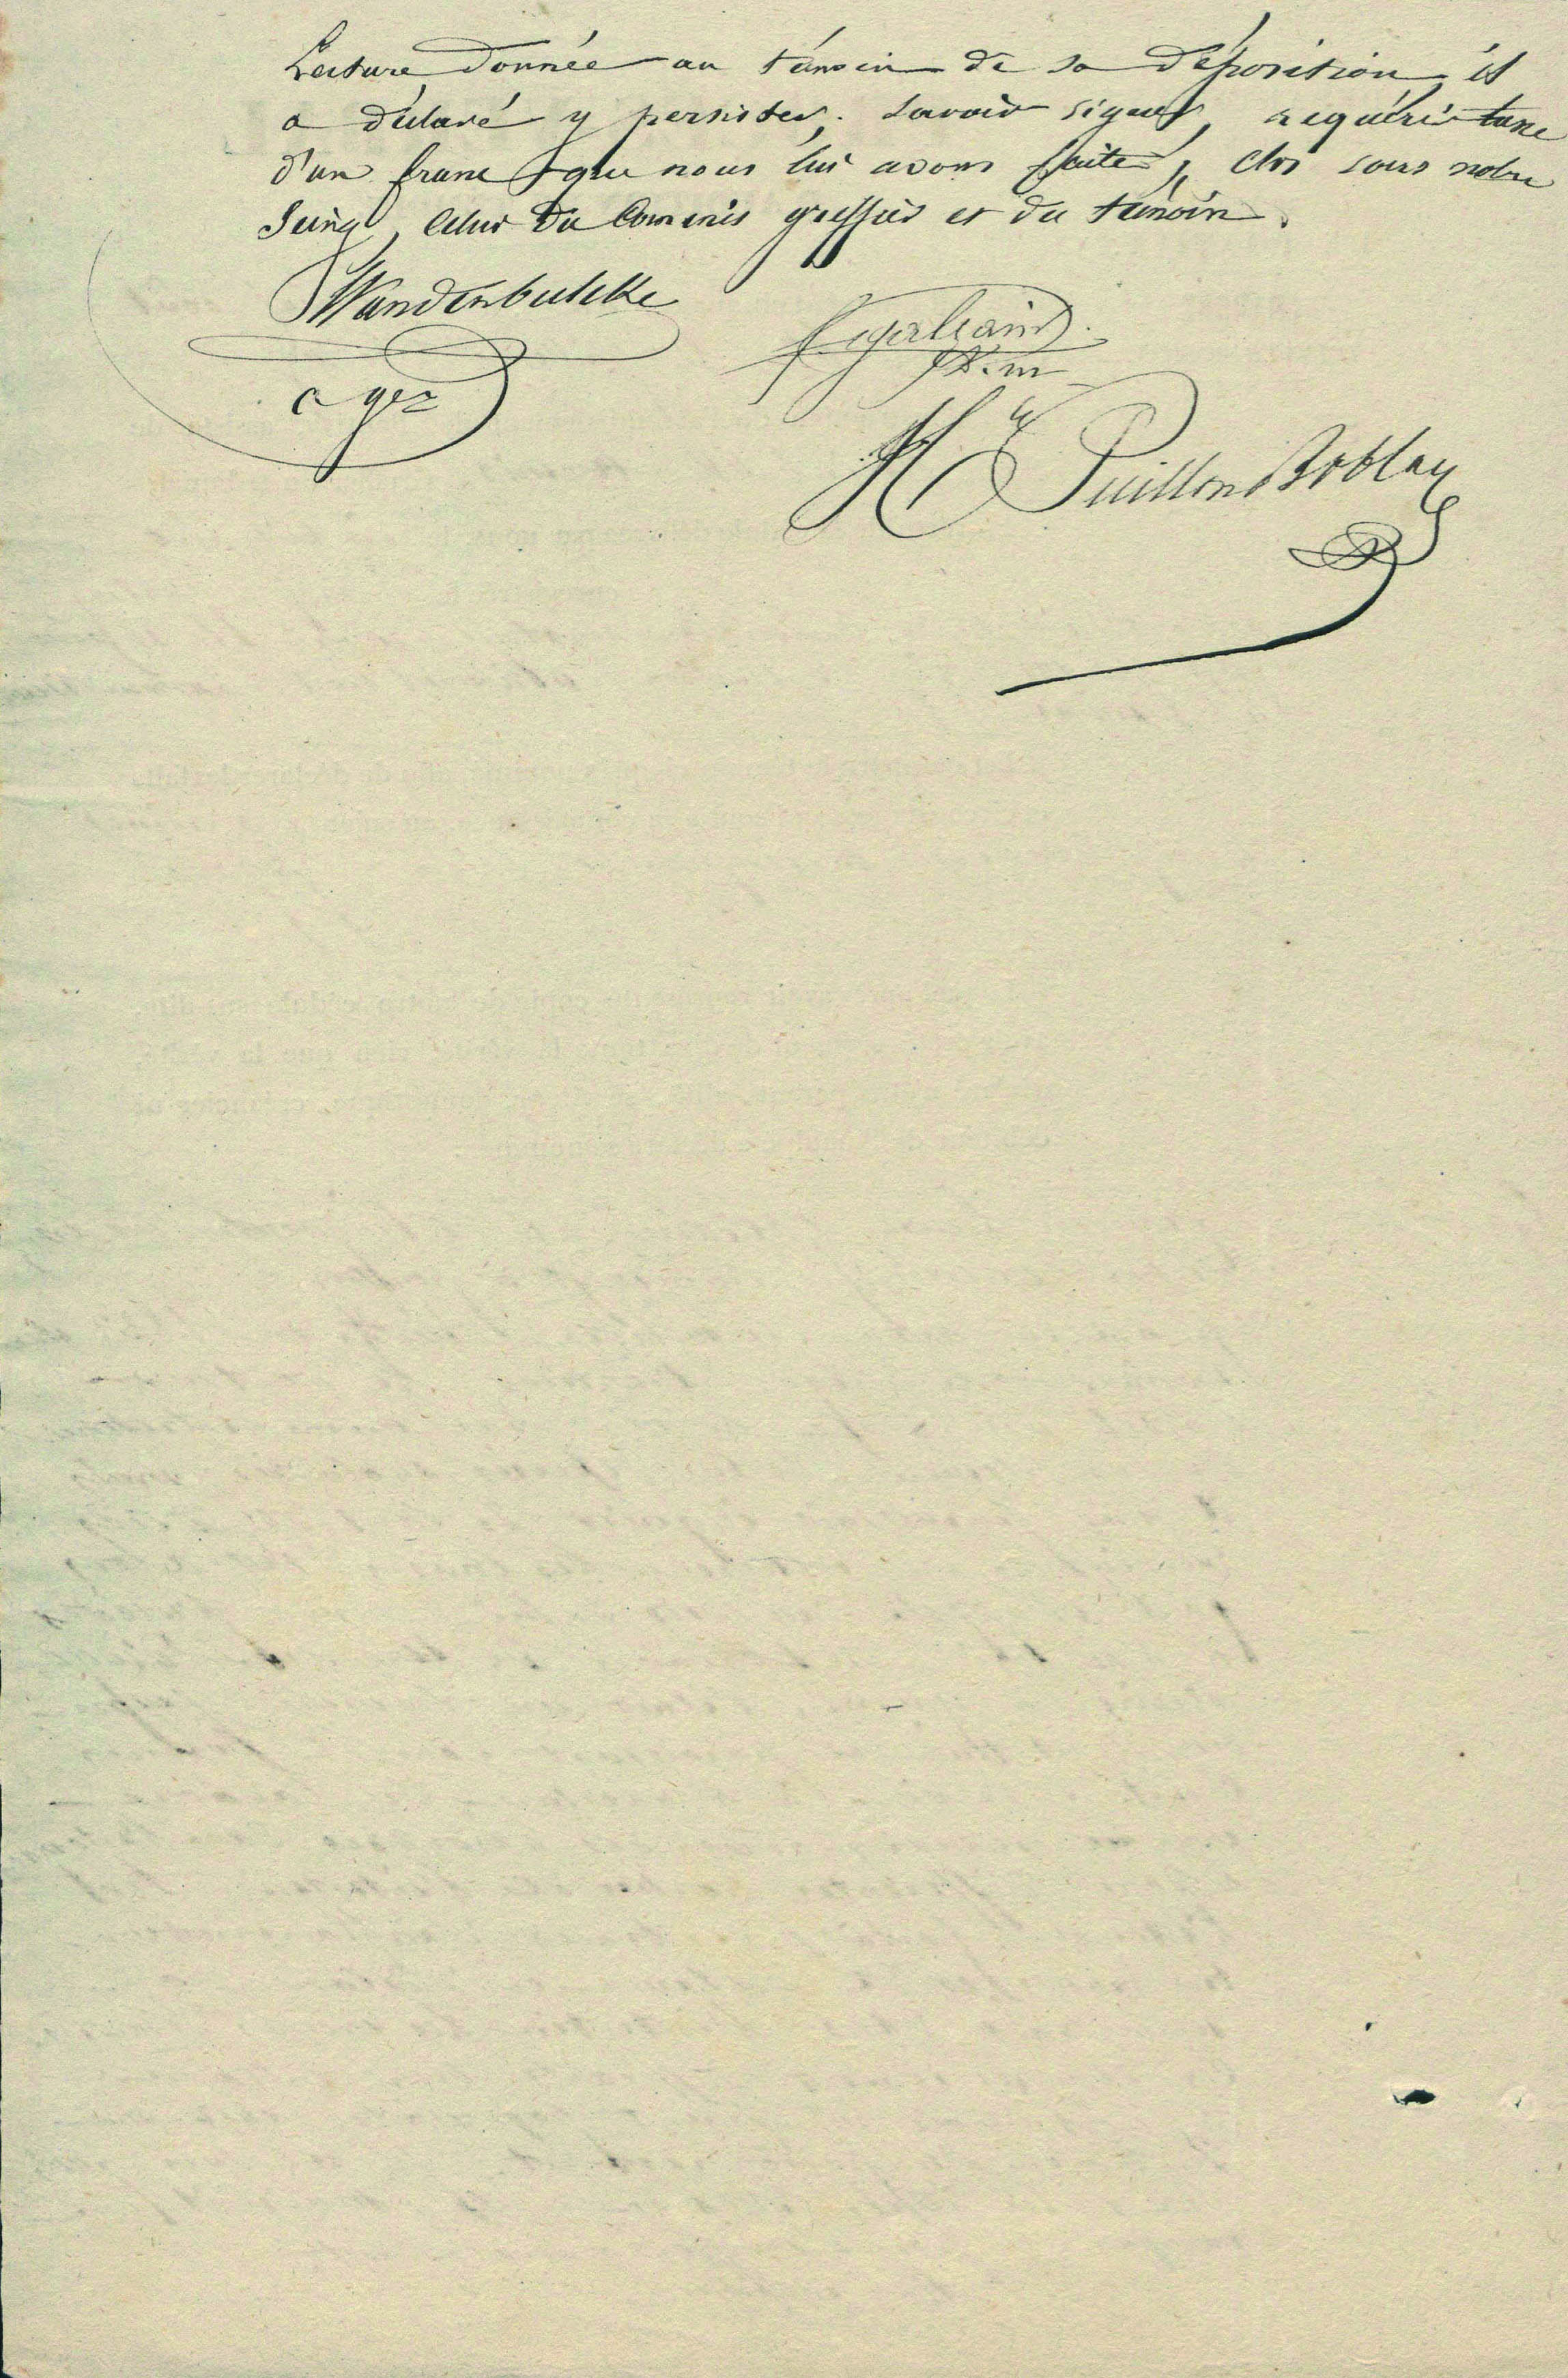 Lecture donnée au témoin de sa déposition, il
a déclaré y persister. Savoir signer, requérir taxe
d'un franc que nous lui avons faite, clos sous notre
seing, celui du Commis greffier et du témoin.
Wandenbulcke
c ger
Puillon Boblay